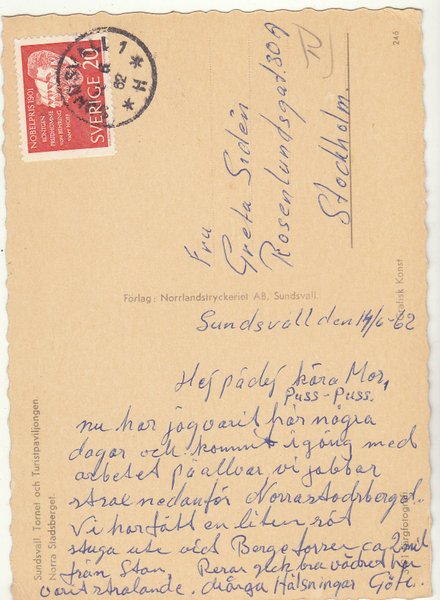 NOBELPRIS 1901
RÖNTGEN
PRUDHOMME
VON BEHRING
VAN'T HOFF
SVERIGE 20
SUNDSVALL 1
6
62
* H *
246
Fru
Greta Sidén
Rosenlundsgat. 30 9
Stockholm.
Förlag: Norrlandstryckeriet AB, Sundsvall.
Grafisk Konst
Färgfotografi
Sundsvall. Tornet och Turistpaviljongen.
Norra Stadsberget.
Sundsvall den 14/6-62
Hej pådej kära Mor,
Puss-Puss.
nu har jag varit här några
dagar och kommit igång med
arbetet på allvar vi jobbar
strax nedanför Norra stadsberget.
Vi har fått en liten röd
stuga ute vid Bergeforsen ca 2 mil
från Stan. Resan gick bra vädret har
varit strålande. många Hälsningar Göte.